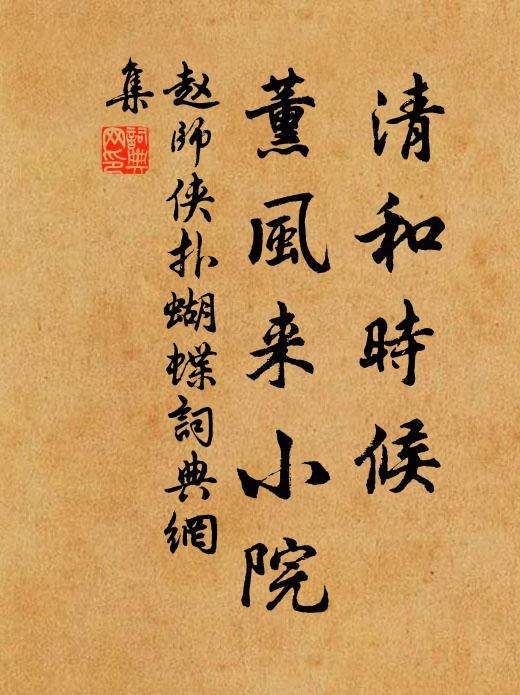 清和時候
薰風来小院
赵師侠扑蝴蝶詞典網
集
詞典
网印